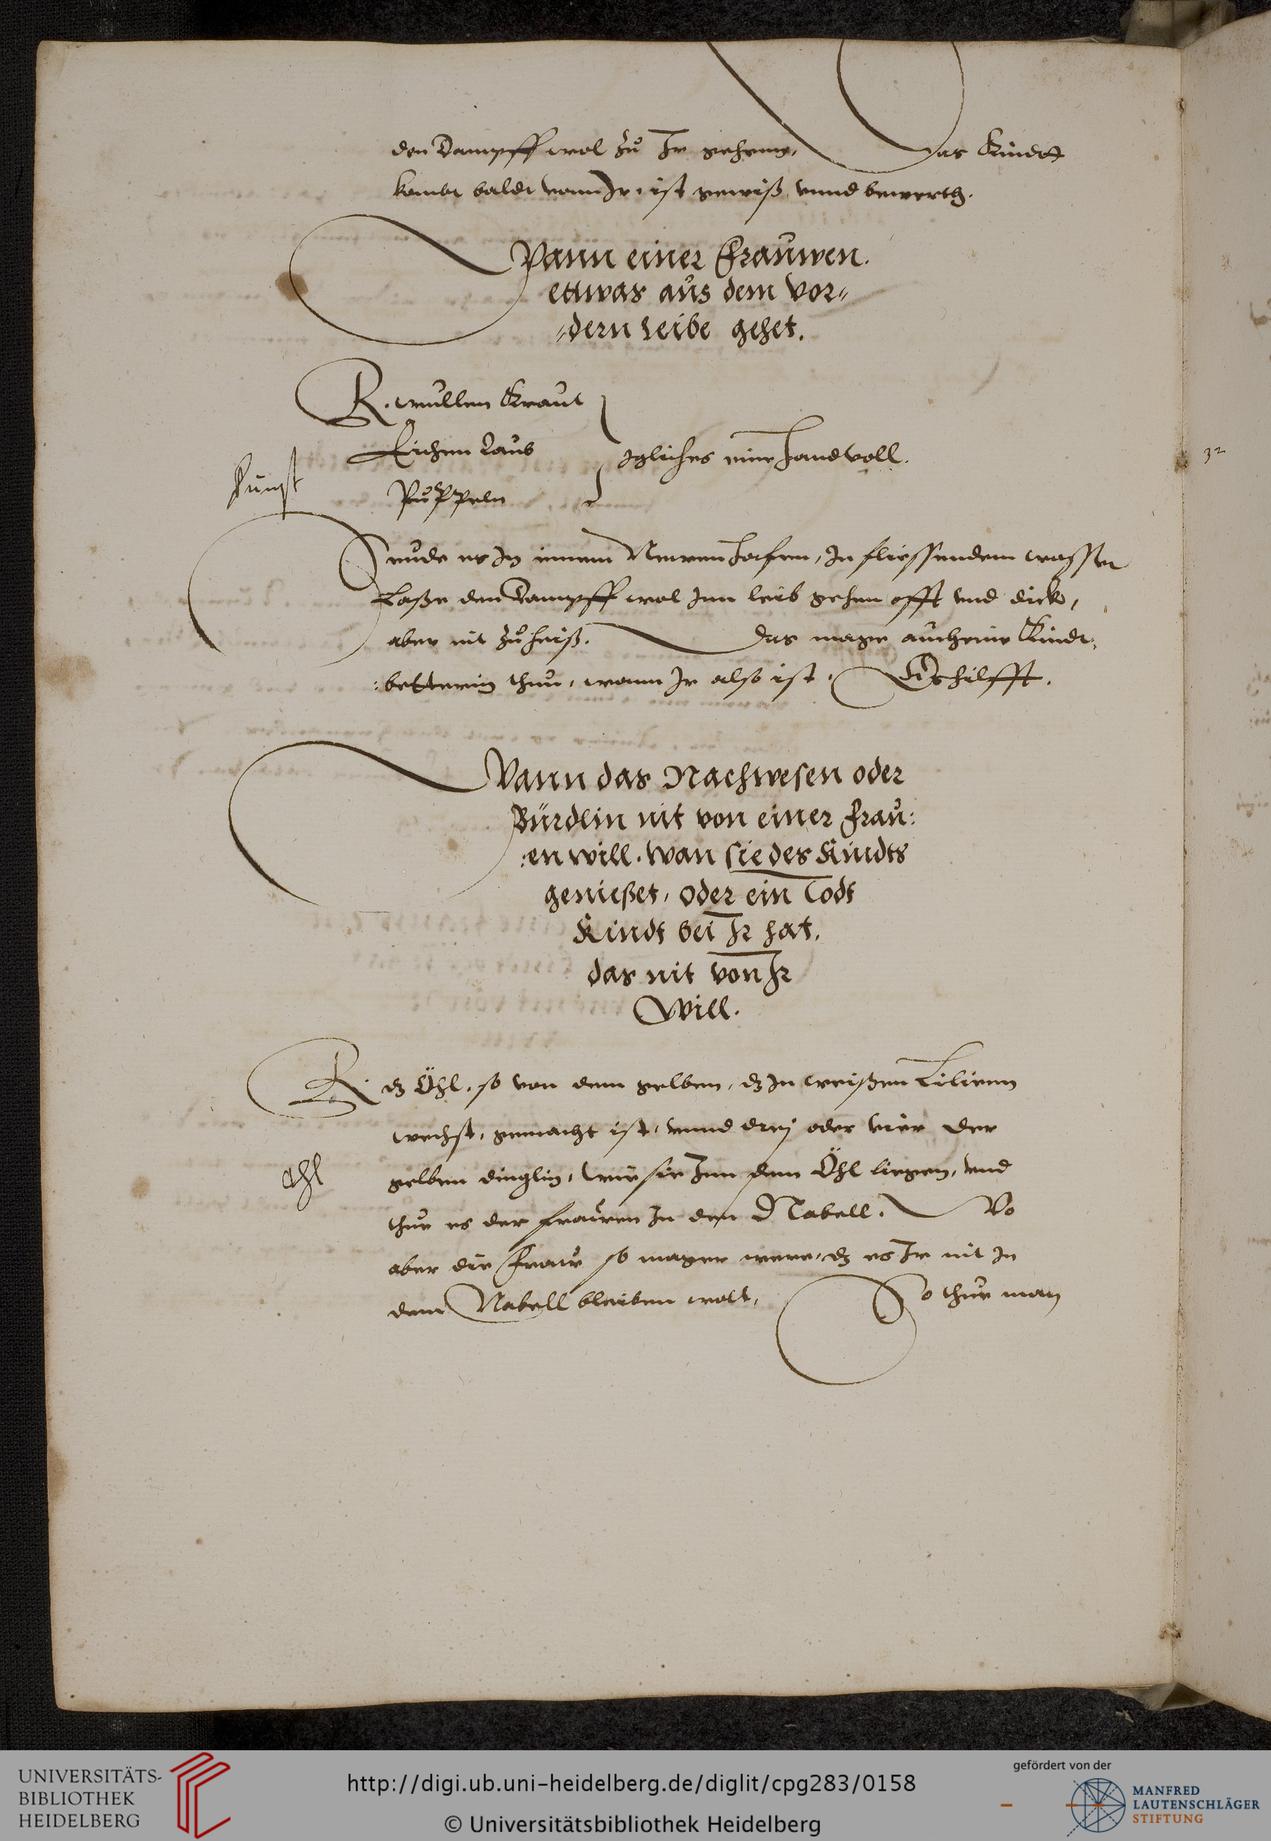 den dampff wol zu Ir gehenn, Das Kindtt
kombt baldt vonn Ir, ist gewiß vnnd bewerth.
Wann einer Frauwen
ettwas aus dem vor=
=dern Leibe gehet.
R. wullen Kraut
Eichen Laub
iglichs eine handvoll.
Pappeln
Seude es In einem Neuwen hafen, In fliessendem wasser
Laße den dampff wol Inn leib gehen offt vnd dick,
aber nit zu heiß. das mage auch eine Kindt:
:betterin thun, wann Ir also ist. Es hilfft.
Wann das Nachwesen oder
Bürdlin nit von einer frau:
:en will. Wan sie des Kindts
genießet, oder ein Todt
Kindt bei Ir hat,
das nit von Ir
Will.
R. dz Öhl, so von dem gelben, dz In weißen Lilienn
wechst, gemacht ist, vnnd drej oder vier der
gelben dinglin, wie sie Inn dem Öhl liegen, vnd
thue es der frauwen In den Nabell. Wo
aber die Frauw so mager were, dz es Ir nit In
dem Nabell bleiben wolt, So thue man
32
UNIVERSITÄTS-
BIBLIOTHEK
HEIDELBERG
http://digi.ub.uni-heidelberg.de/diglit/cpg283/0158
© Universitätsbibliothek Heidelberg
gefördert von der
MANFRED
LAUTENSCHLÄGER
STIFTUNG